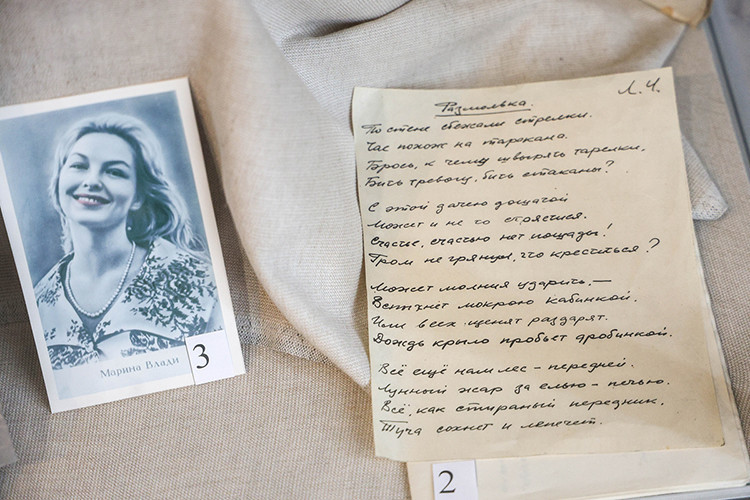 Марина Влади
3
Л.Ч.
Размолвка.
По стене сбежали стрелки.
Час похож на таракана.
Брось, к чему швырять тарелки,
Бить тревогу, бить стаканы?
С этой дачею дощатой
Может и не то стрястися.
Счастье, счастью нет пощады!
Гром не грянул, что креститься?
Может молния ударить,—
Вспыхнет мокрою кабинкой.
Или всех щенят раздарят.
Дождь крыло пробьет дробинкой.
Всё ещё нам лес – передней.
Лунный жар за елью – печью.
Всё, как стираный передник.
Туча сохнет и лепечет.
2